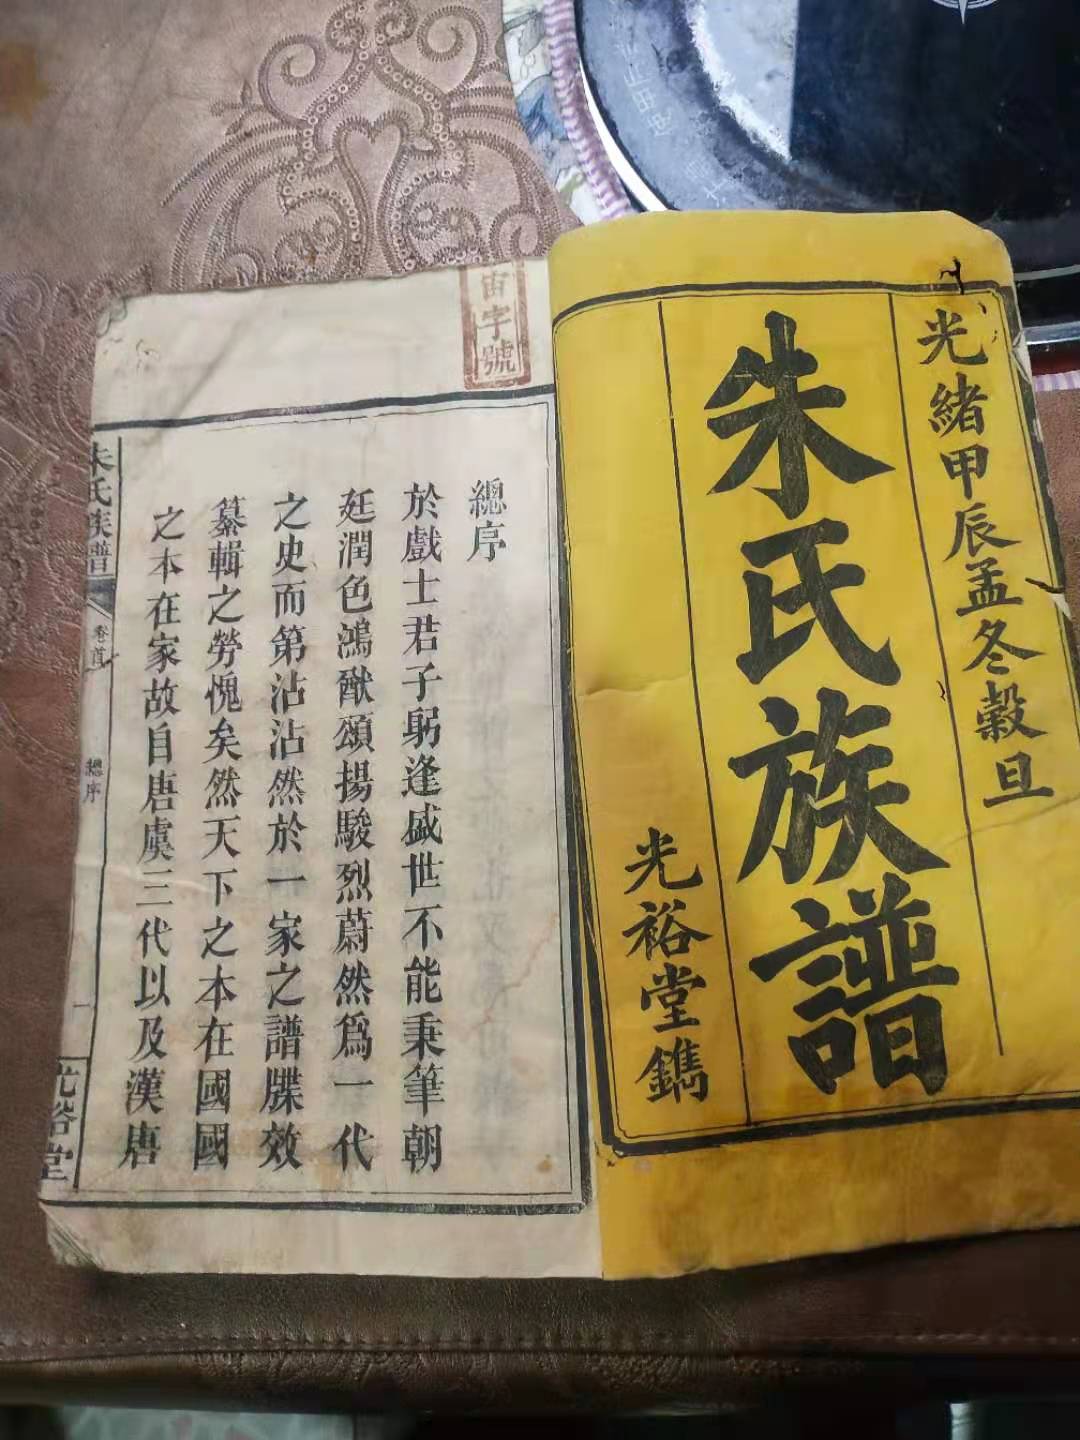 光緒甲辰孟冬穀旦
朱氏族譜
光裕堂鐫
宙字號
總序
於戲士君子躬逢盛世不能秉筆朝
廷潤色鴻猷頌揚駿烈蔚然爲一代
之史而第沾沾然於一家之譜牒效
纂輯之勞愧矣然天下之本在國國
之本在家故自唐虞三代以及漢唐
朱氏族譜
卷首
總序
一
光裕堂